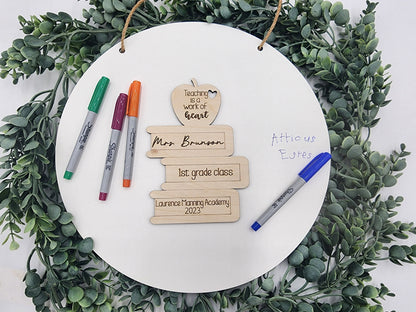 Teaching
is a
work of
heart
Mrs. Brunson
1st grade class
Laurence Manning Academy
2023
Atticus
Sharpie
Sharpie
Sharpie
Sharpie